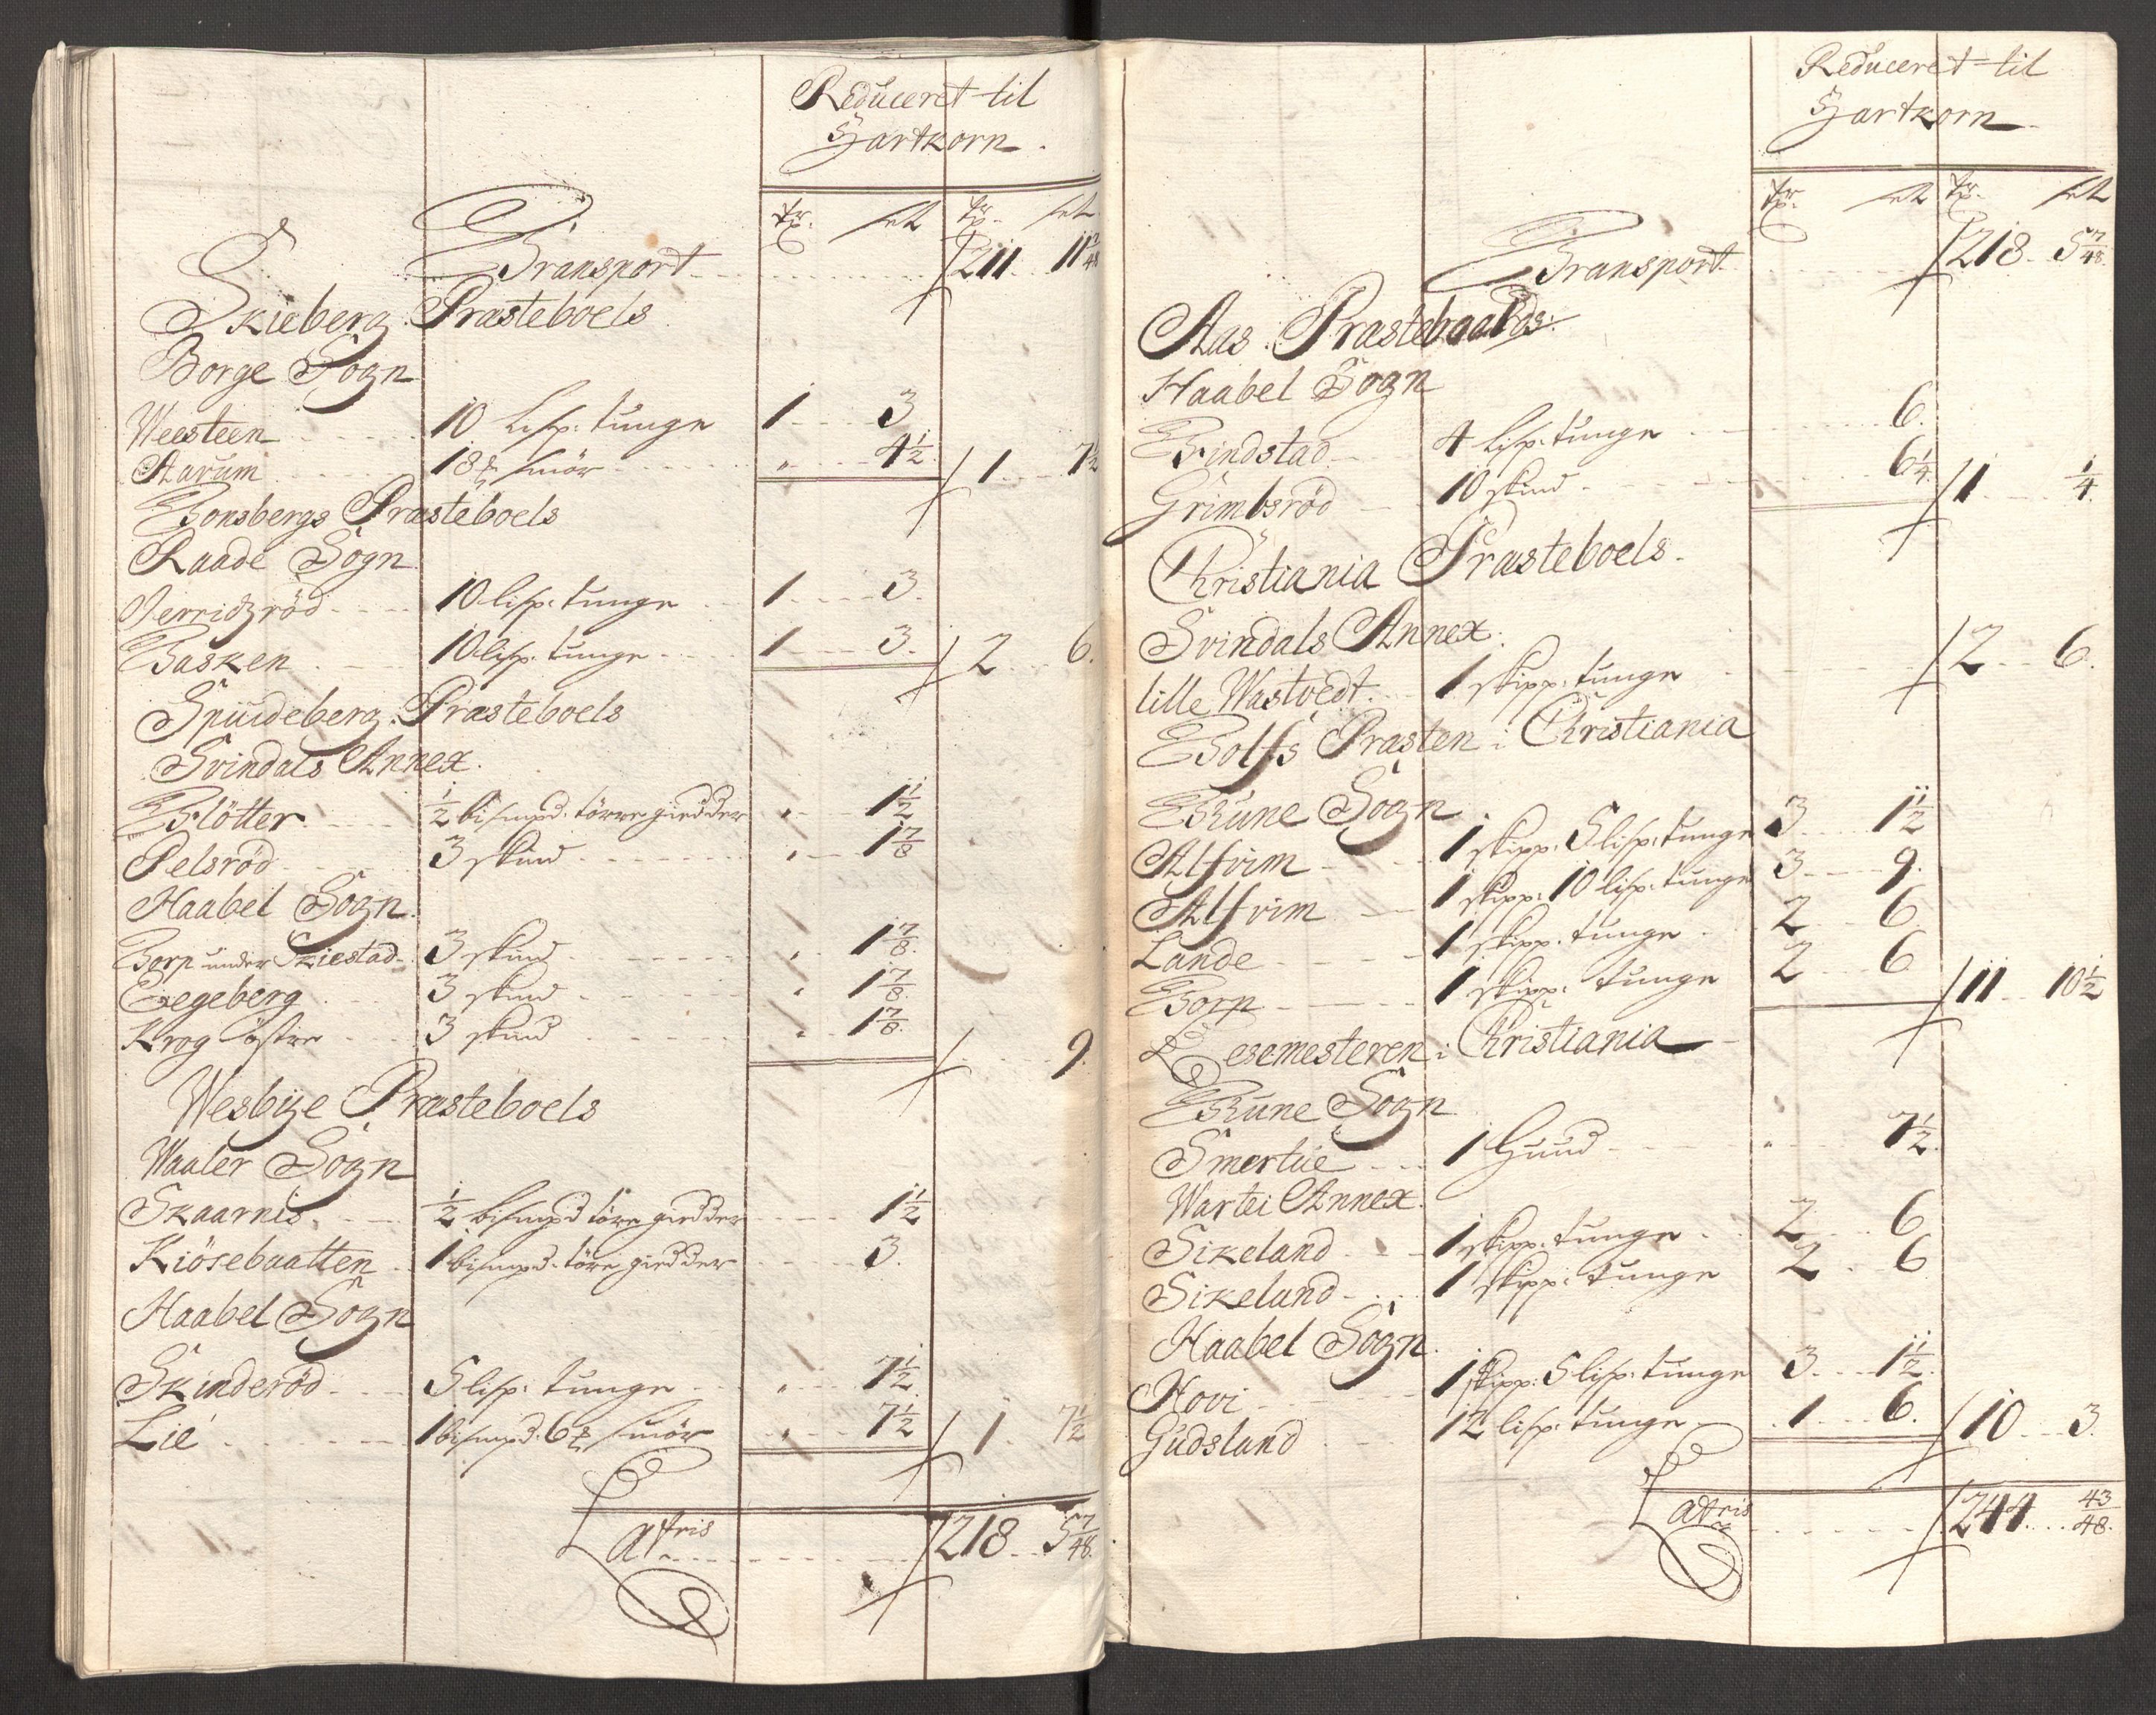 Reduceret til
Hartkorn.
Transport 211 11 7/48
Skieberg Præsteboels
Borge Sogn
Weesteen 10 Lisp: tunge 1 3
Aarum 18 ℔ smör " 4½ 1 7½
Tonsbergs Præsteboels
Raade Sogn
10 lisp: tunge 1 3.
Tasken 10 lisp: tunge 1 3. 2 6.
Spuideberg Præsteboels
Svindals Annex.
Slötter ½ bismpd: törre giedder " 1½
Pelsröd 3 skind " 1⅞
Haabel Sogn.
Torp under Skiestad 3 skind " 1⅞.
Egeberg 3 skind " 1⅞.
Krog östre 3 skind " 1⅞. 9.
Wesbye Præsteboels
Waaler Sogn
Skaarnis ½ bismpd töre giedder 1½
Kiösebaatten 1 bismpd: töre giedder 3.
Haabel Sogn
Skinderöd 5 lisp: tunge " 7½.
Lie 1 bismpd: 6 ℔ smör " 7½ 1 7½
Latris 218 5 7/48.
Reduceret til
Hartkorn.
Transport 218 5 7/48.
Aas Præstebaalds:
Haabel Sogn
Tindstad 4 lisp: tunge 6.
Grimbsröd 10 skind 6¼. 1 ¼.
Christiania Præsteboels.
Svindals Annex.
lille Wastvedt 1 skipp: tunge 2 6.
Præsten i Christiania
Thune Sogn
Alfvim 1 skipp: 5 lisp: tunge 3 1½
Alfvim 1 skipp: 10 lisp: tunge 3 9.
Lande 1 skipp: tunge 2 6
Torp 1 skipp: tunge 2 6 11 10½
Lesemesteren i Christiania
Thune Sogn
Smertue 1 Huud " 7½.
Wartei Annex.
Sikeland 1 skipp: tunge 2 6
Sikeland 1 skipp: tunge 2 6
Haabel Sogn.
Hovi 1 skipp: 5 lisp: tunge 3 1½.
Gudslund 12 lisp: tunge 1 6. 10 3.
Latris 244 43/48.